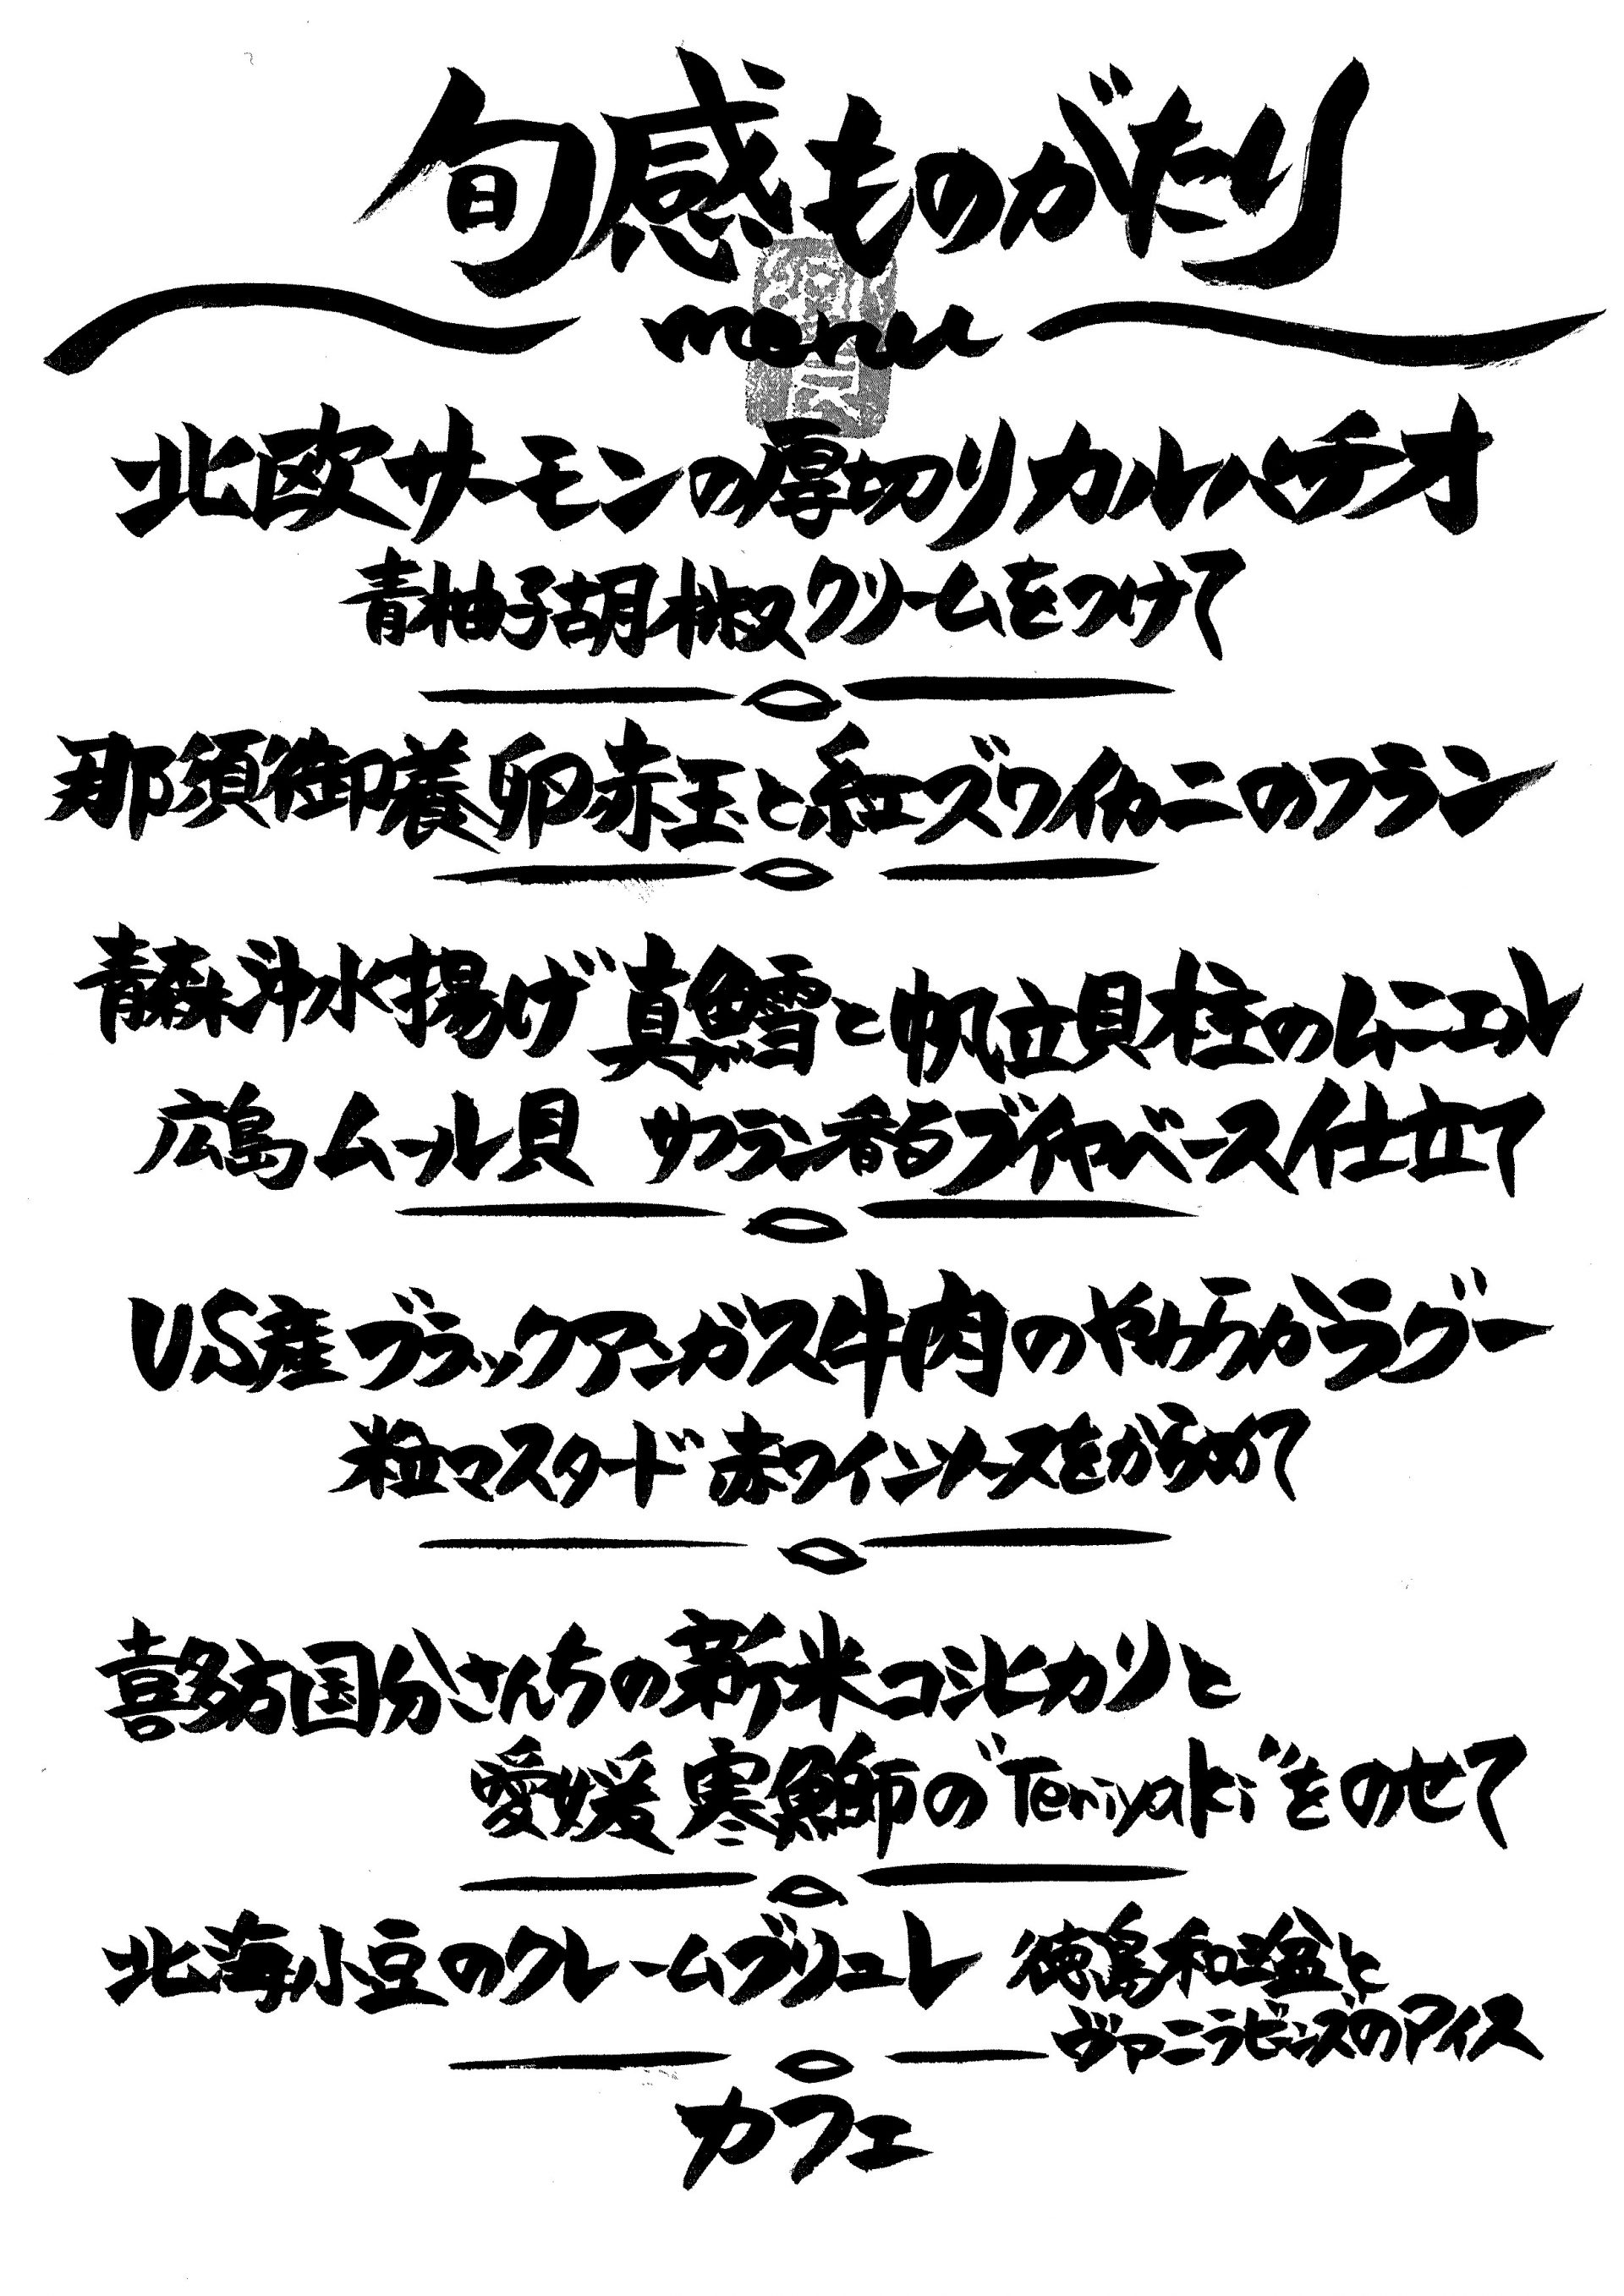 旬感ものがたり
menu
北欧サーモンの厚切りカルパチオ
青柚子胡椒クリームをつけて
那須御養卵赤玉と紅ズワイカニのフラン
青森沖水揚げ 真鱈と帆立貝柱のムニエル
広島ムール貝 サフラン香るブイヤベース仕立て
US産ブラックアンガス牛肉のやわらかラグー
粒マスタード 赤ワインソースをからめて
喜多方国分さんちの新米コシヒカリと
愛媛 寒鰤の"Teriyaki"をのせて
北海小豆のクレームブリュレ 徳島和三盆と
ヴァニラビーンズのアイス
カフェ